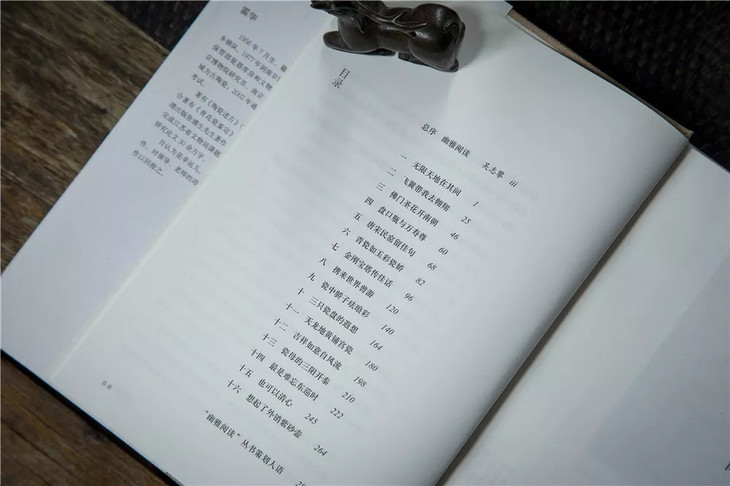 霍华
1956年7月生,
考试。
目录
总序 幽雅阅读 吴志攀 iii
一 无限天地在其间 1
二 飞翼带我去翱翔 25
三 佛门圣花开南朝 46
四 盘口瓶与万寿尊 60
五 唐宋民窑留佳句 68
六 青瓷如玉彩瓷娇 82
七 金刚宝塔传佳话 96
八 携来世界曾游 120
九 瓷中骄子珐琅彩 140
十 三只瓷盘的遐想 164
十一 天龙地黄铺宫瓷 180
十二 吉祥如意自风流 198
十三 瓷母的三阳开泰 210
十四 最是难忘东巡时 222
十五 也可以清心 245
十六 想起了外销紫砂壶 264
“幽雅阅读”丛书策划人语